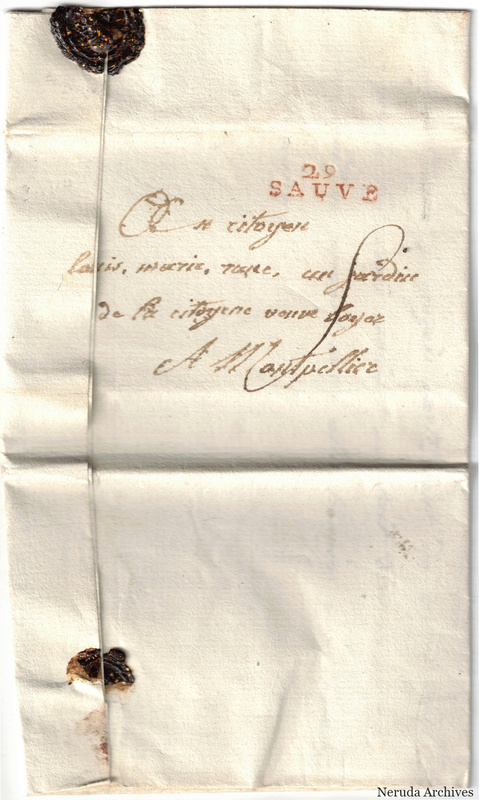 29
SAUVE
Au citoyen
louis, marie, un jardin
de la citoyene veuve boyer
A Montpellier
Neruda Archives